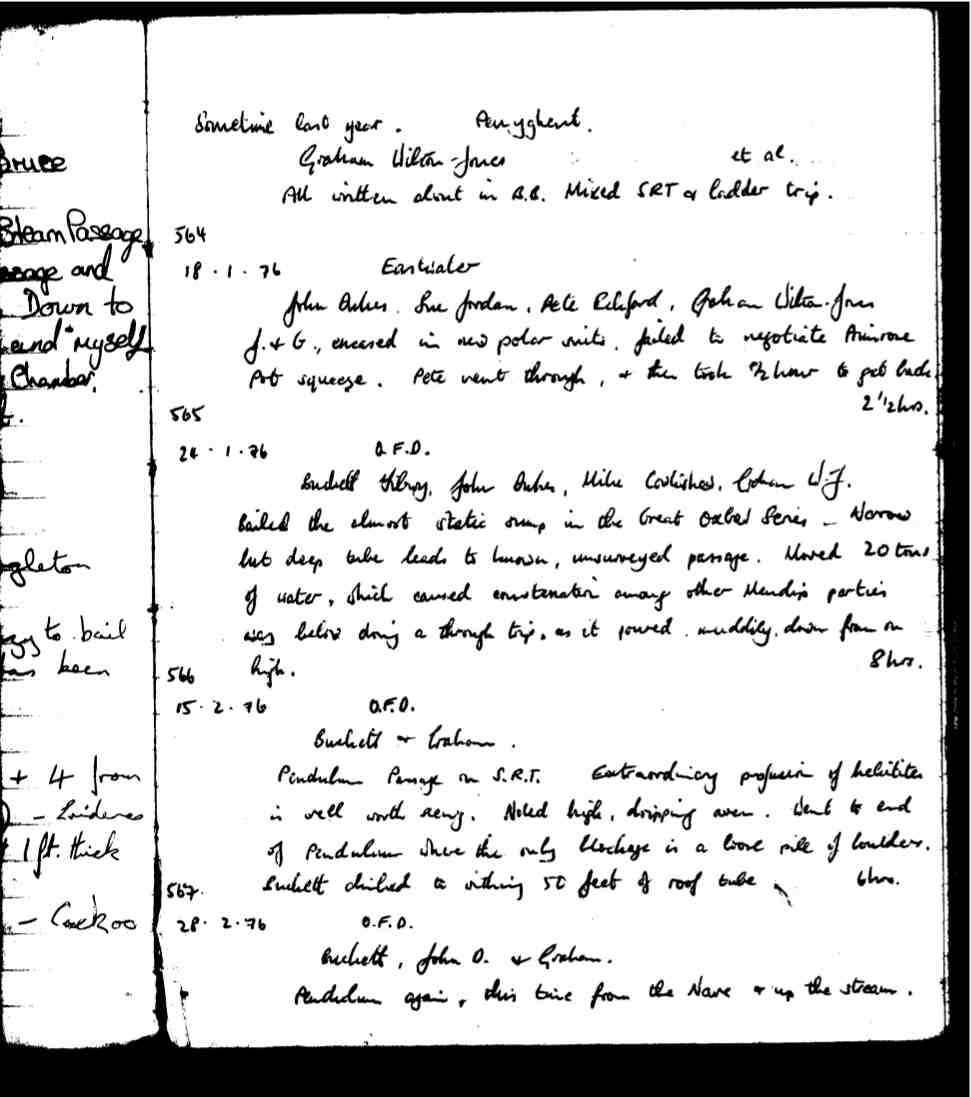 Bruce
Steam Passage
ssage and
Down to
and myself
Chamber.
gleton
to bail
been
+ 4 from
1 ft. thick
- Cuckoo
Sometime last year. Penyghent.
Graham Wilton-Jones et al.
All written about in B.B. Mixed SRT & ladder trip.
564
18.1.76 Eastwater
John Dukes, Sue Jordan, Pete Eckford, Graham Wilton-Jones
J. & G., encased in new polar suits, failed to negotiate Primrose
Pot squeeze. Pete went through, & then took ½ hour to get back.
2 1/2 hrs.
565
24.1.76 O.F.D.
Buckett Tilbury, John Dukes, Mike Cowlishaw, Graham W-J.
Bailed the almost static sump in the Great Oxbow Series - Narrow
but deep tube leads to known, unsurveyed passage. Moved 20 tons
of water, which caused consternation among other Mendip parties
way below doing a through trip, as it poured, muddily, down from on
high. 8 hrs.
566
15.2.76 O.F.D.
Buckett & Graham.
Pendulum Passage on S.R.T. Extraordinary profusion of helictites
is well worth seeing. Noted high, dripping aven. Went to end
of Pendulum where the only blockage is a loose pile of boulders.
Buckett climbed to within 50 feet of roof tube 6 hrs.
567.
28.2.76 O.F.D.
Buckett, John D. & Graham.
Pendulum again, this time from the Nave & up the stream.